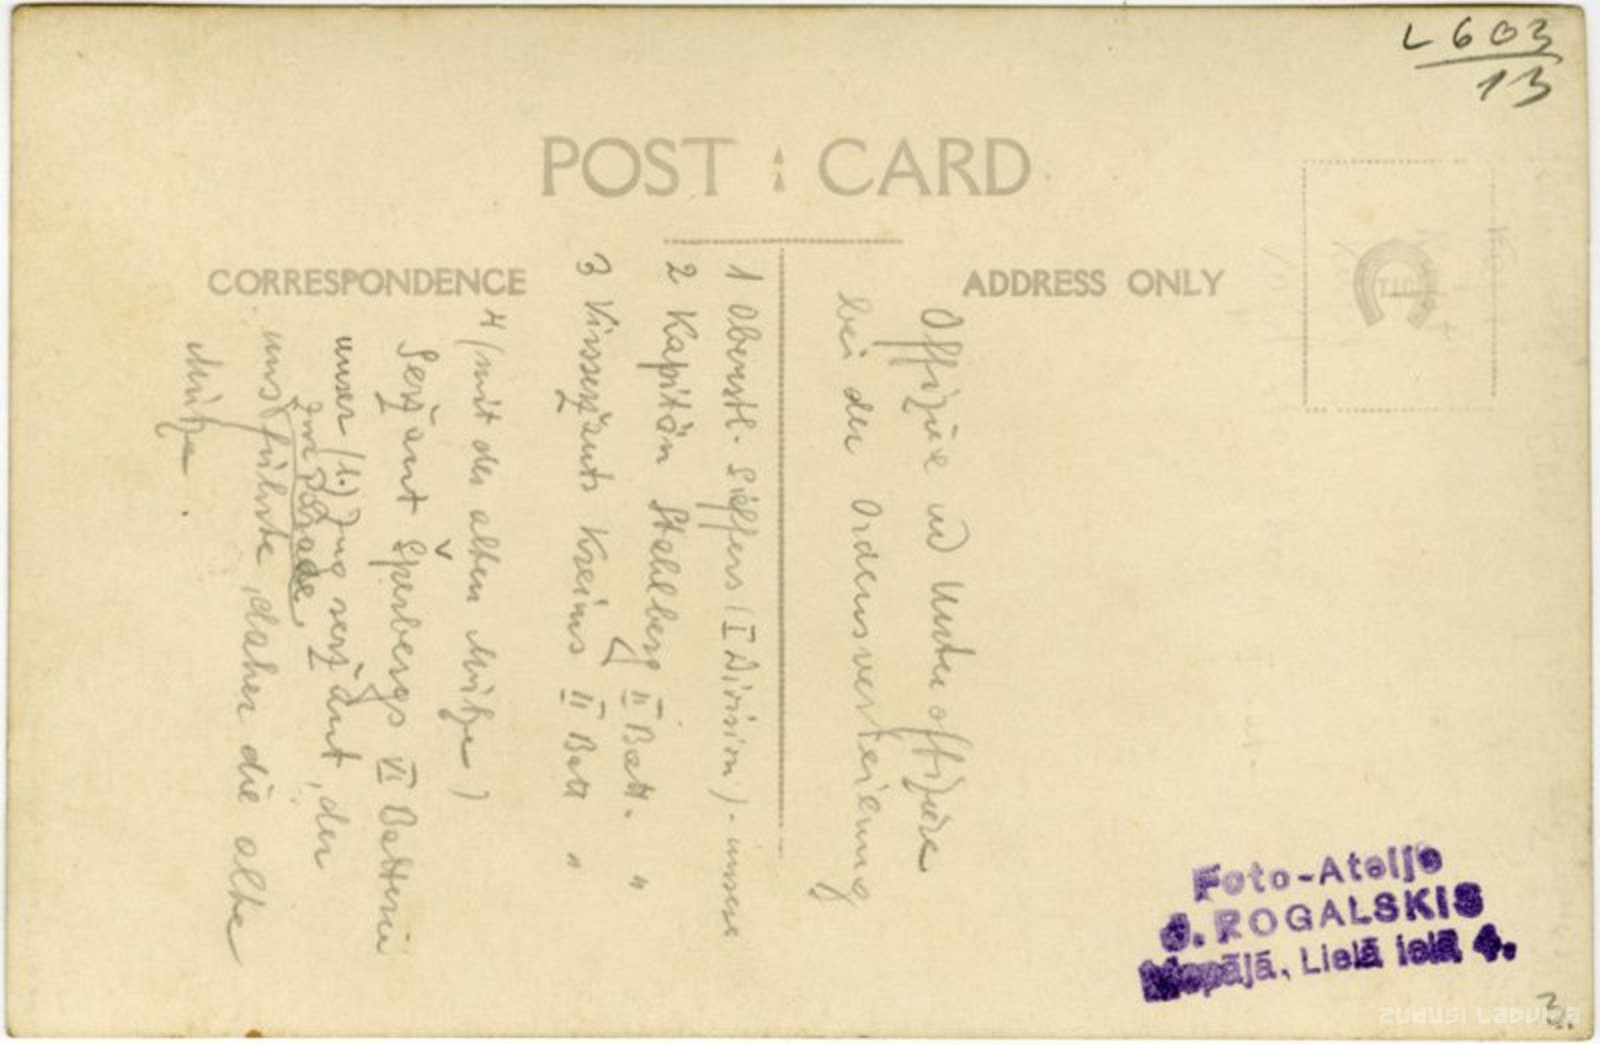 L 603
13
POST CARD
CORRESPONDENCE
ADDRESS ONLY
Offiziere und Unteroffiziere
bei der Ordensverleihung
1 Oberstl. (I Division) - unsere
2 Kapitän Stahlberg II Batt. "
3 Virsseržants Kreims II Batt "
4 (mit der alten Mütze)
Seržant Sperbergs VI Batterie
unser (1.) Zug seržant, der
zur Parade
uns führte, daher die alte
Mütze.
Foto-Ateljē
ROGALSKIS
Liepājā, Lielā ielā 4.
3.
zudusi Latvija